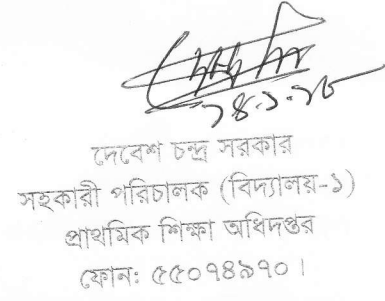 ১৪.১.১৮
দেবেশ চন্দ্র সরকার
সহকারী পরিচালক (বিদ্যালয়-১)
প্রাথমিক শিক্ষা অধিদপ্তর
ফোন: ৫৫০৭৪৯৭০।